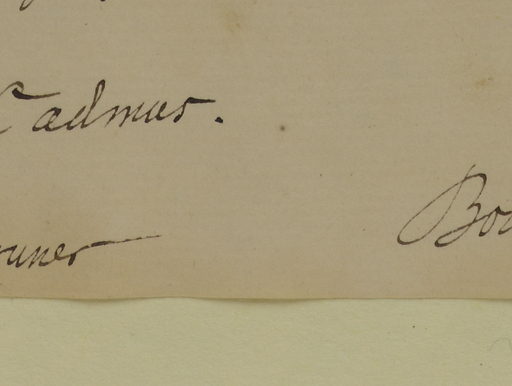 Cadmus.
runer Bo